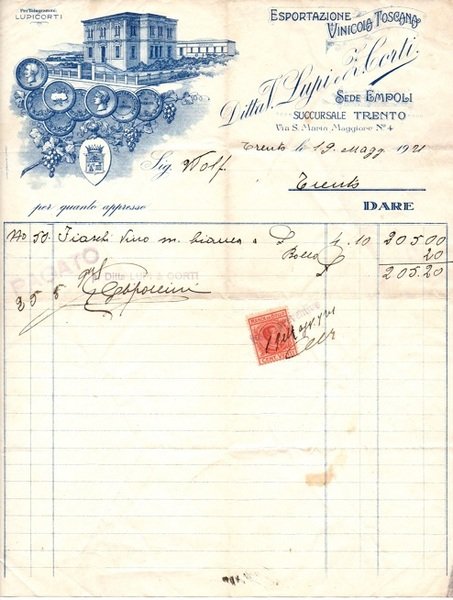 Per Telegrammi:
LUPICORTI
ESPORTAZIONE
VINICOLA TOSCANA
Ditta V. Lupi e Corti.
SEDE EMPOLI
SUCCURSALE TRENTO
Via S. Maria Maggiore N° 4
Trento li 19 Magg. 1921
Sig. Wolf.
Trento
per quanto appresso
DARE
No 50. Fiaschi vino m. bianco a £ 4.10 205.00
Bollo 20
£ 205.20
PAGATO
Ditta LUPI & CORTI
25 5